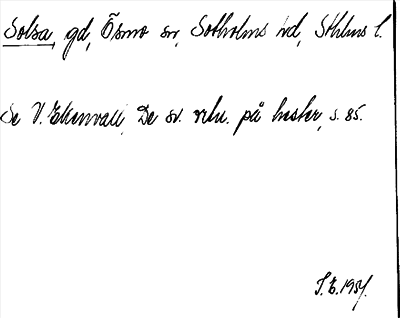 Solsa, gd, Ösmo sn, Sotholms hd, Sthlms l.
Se V. Ekenvall, De sv. ortn. på hester, s. 85.
S.E. 1954.